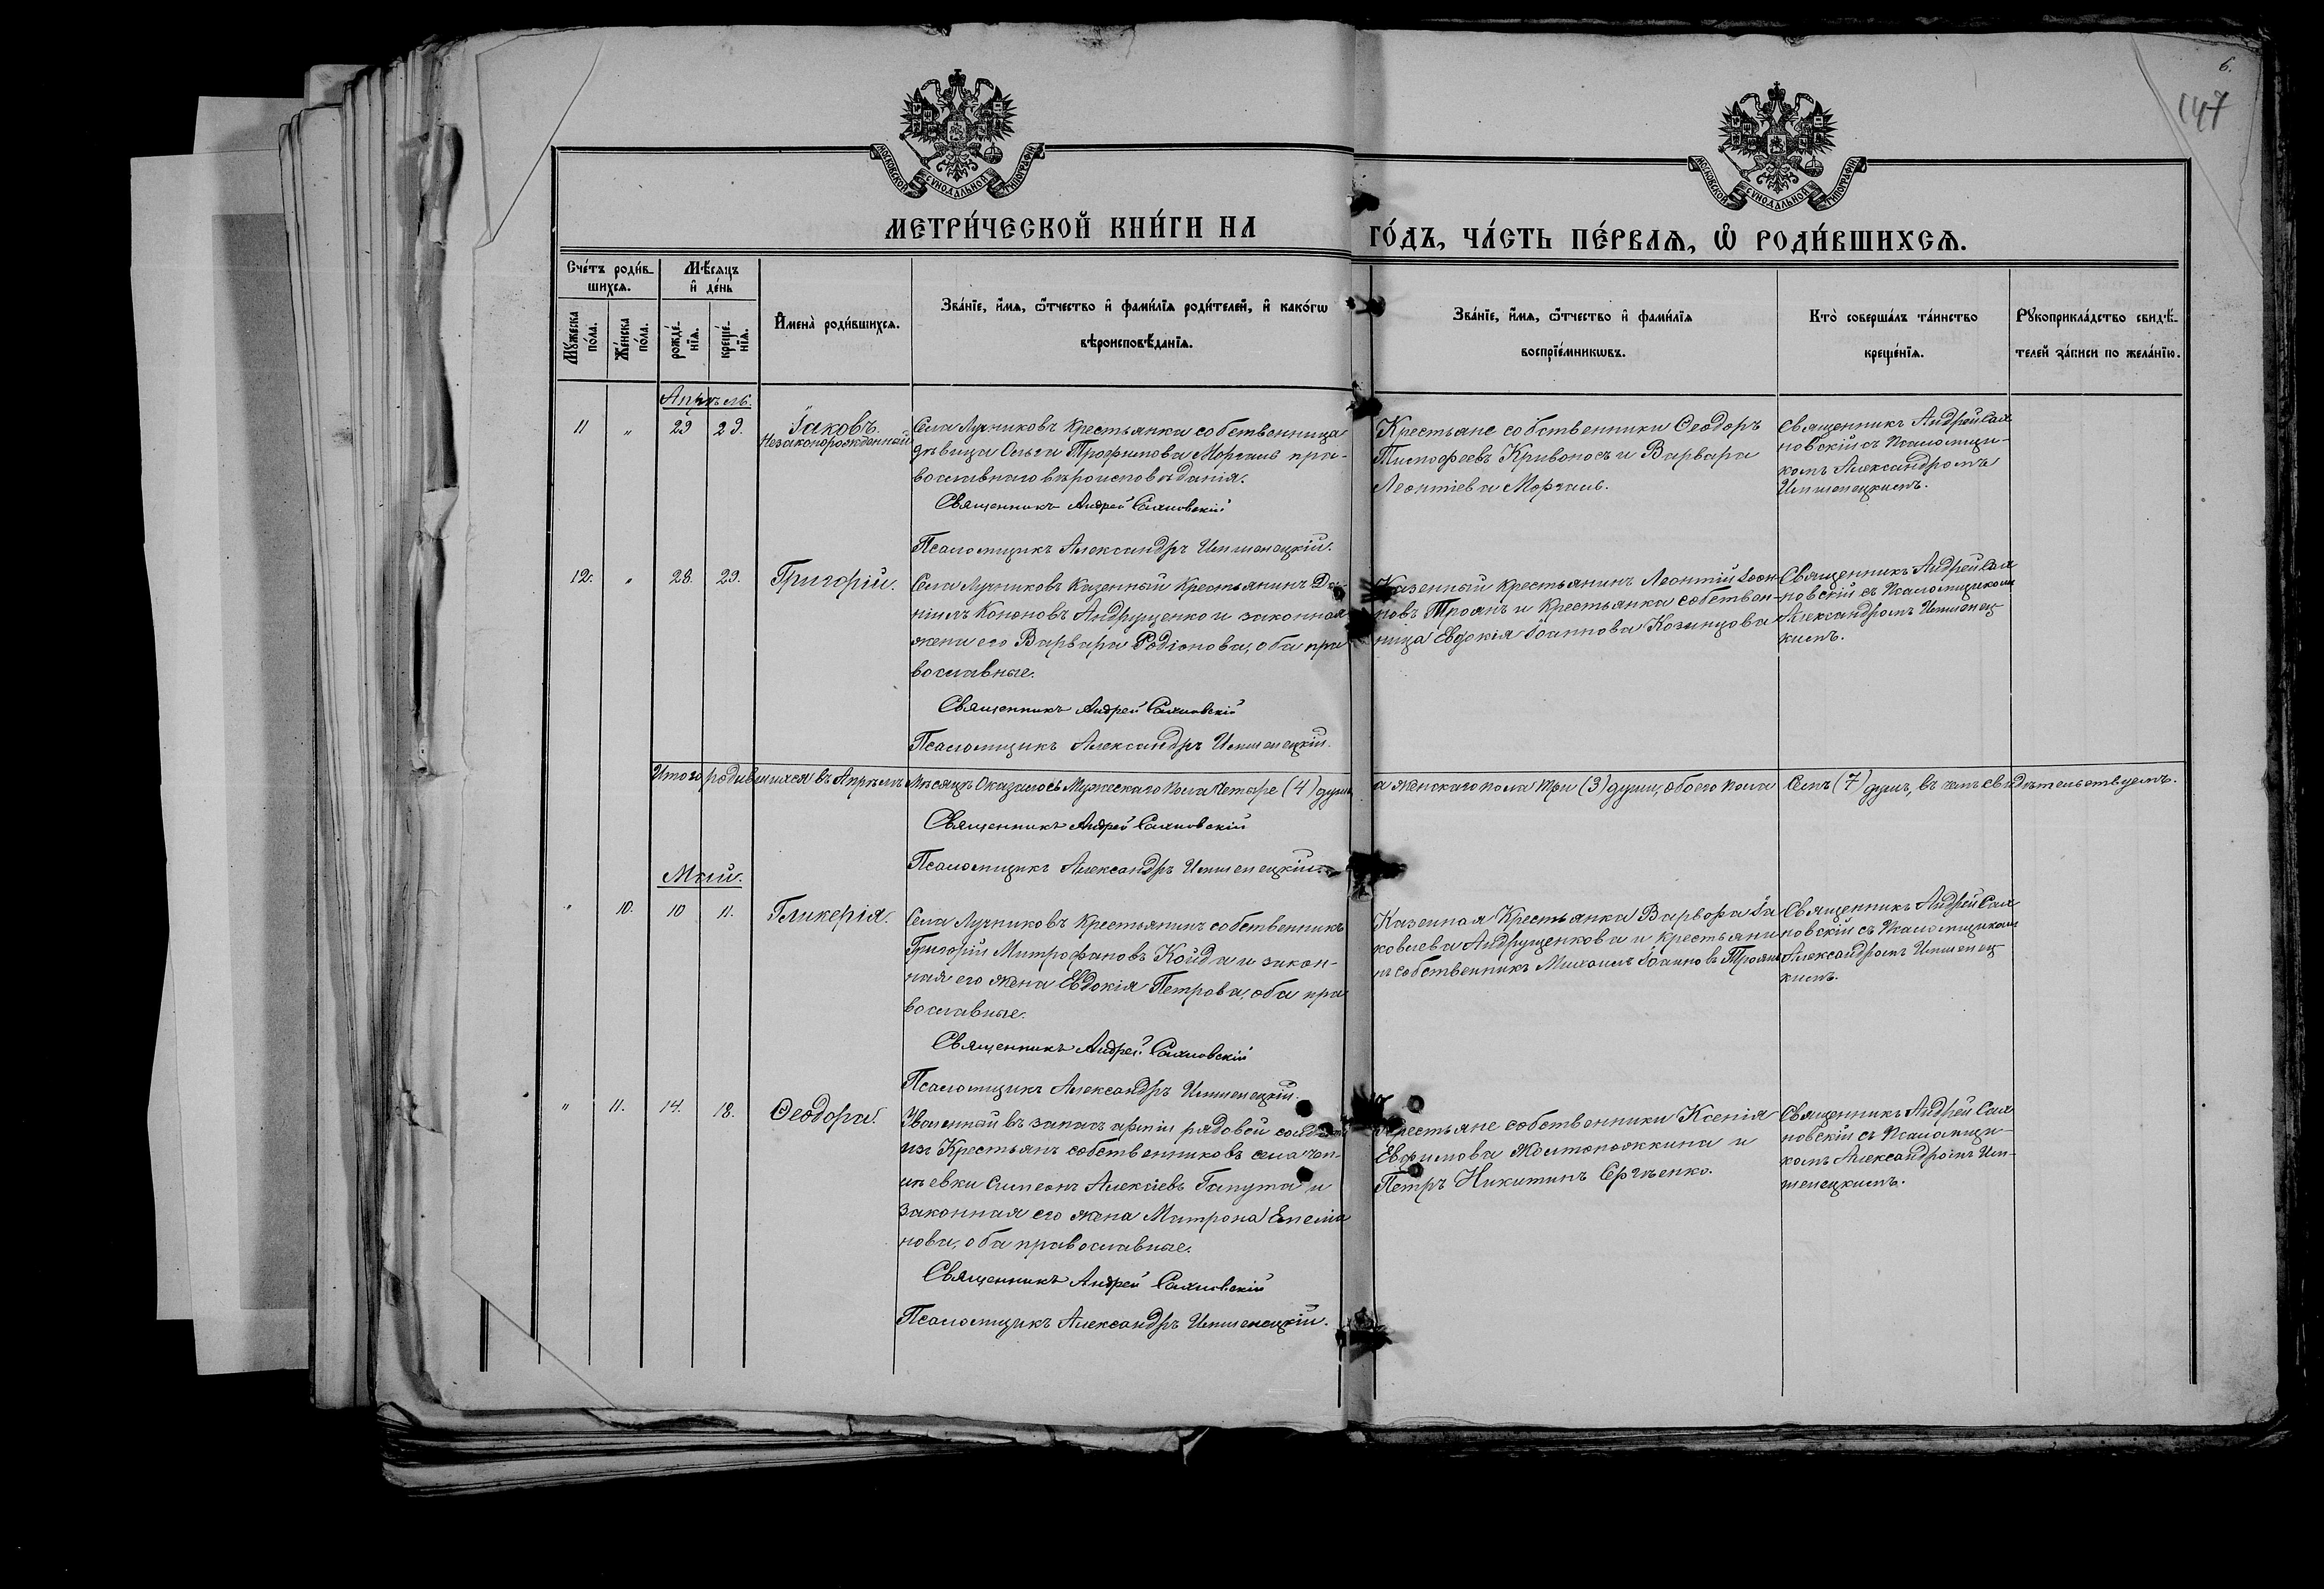 6.
147
МОСКОВСКОЙ СѴНОДАЛЬНОЙ ТИПОГРАФІИ
МОСКОВСКОЙ СѴНОДАЛЬНОЙ ТИПОГРАФІИ
МЕТРИ́ЧЕСКОЙ КНИ́ГИ НА
ГО́ДЪ, ЧА́СТЬ ПЕ́РВАѦ, Ѽ РОДИ́ВШИХСѦ.
Сче́тъ роди́в-
шихсѧ.
Мѣ́сѧцъ
и҆ де́нь
Мꙋ́жеска
по́ла.
Же́нска
по́ла.
рожде́-
нїѧ.
креще́-
нїѧ.
И҆мена̀ роди́вшихсѧ.
Зва́нїе, и҆́мѧ, ѻ҆́тчество и҆ фами́лїѧ роди́телей, и҆ како́гѡ
вѣроисповѣ́данїѧ.
Зва́нїе, и҆́мѧ, ѻ҆́тчество и҆ фами́лїѧ
воспрїе́мникѡвъ.
Кто̀ соверша́лъ та́инство
креще́нїѧ.
Рꙋкоприкла́дство свидѣ́-
телей за́писи по жела́нїю.
Апрѣль.
11 " 29 29.
Іаковъ.
Незаконорожденный
Села Лучниковъ крестьянка собственница
дѣвица Ольга Трофимова Моргаль пра-
вославнаго вѣроисповѣданія.
Священникъ Андрей
Псаломщикъ Александръ
Крестьяне собственники Ѳеодоръ
Тимофеевъ Кривоносъ и Варвара
Леонтіева Моргаль.
Священникъ Андрей Сах
новскій съ Псаломщи-
комъ Александромъ
12. " 28. 29.
Григорій.
Села Лучниковъ казенный крестьянинъ Да-
ніилъ Кононовъ Андрущенко и законная
жена его Варвара Родіонова, оба пра
вославные.
Священникъ Андрей Сахновскій
Псаломщикъ Александръ
Казенный крестьянинъ Леонтій Іоан-
новъ Троянъ и крестьянка собствен-
ница Евдокія Іоаннова Козинцова
Священникъ Андрей Сах
новскій съ Псаломщикомъ
Александромъ
кимъ.
Итого родившихся въ Апрѣлѣ Мѣсяцѣ Оказалось Мужескаго пола четыре (4) души
а женскаго пола три (3) души, обоего пола Семь (7) душъ, въ чемъ свидѣтельствуемъ.
Священникъ Андрей Сахновскій
Псаломщикъ Александръ
Май.
" 10. 10 11.
Гликерія.
Села Лучниковъ крестьянинъ собственникъ
Григорій Митрофановъ Койда и закон-
ная его жена Евдокія Петрова, оба пра
вославные.
Священникъ Андрей Сахновскій
Псаломщикъ Александръ
Казенная крестьянка Варвара Іа
ковлева Андрущенкова и крестьяни
нъ собственникъ Михаилъ Іоанновъ Троянъ
Священникъ Андрей Сах
новскій съ Псаломщикомъ
Александромъ
кимъ.
" 11. 14. 18.
Ѳеодора.
Уволенный въ запасъ арміи рядовой солдатъ
изъ Крестьянъ собственниковъ села Чап-
лѣевки Симеонъ Алексіевъ Гапута и
законная его жена Матрона Емелія
нова, оба православные.
Священникъ Андрей Сахновскій
Псаломщикъ Александръ
Крестьяне собственники Ксенія
Евфимова Желтоножкина и
Петръ Никитинъ Сергѣенко.
Священникъ Андрей Сах
новскій съ Псаломщи-
комъ Александромъ